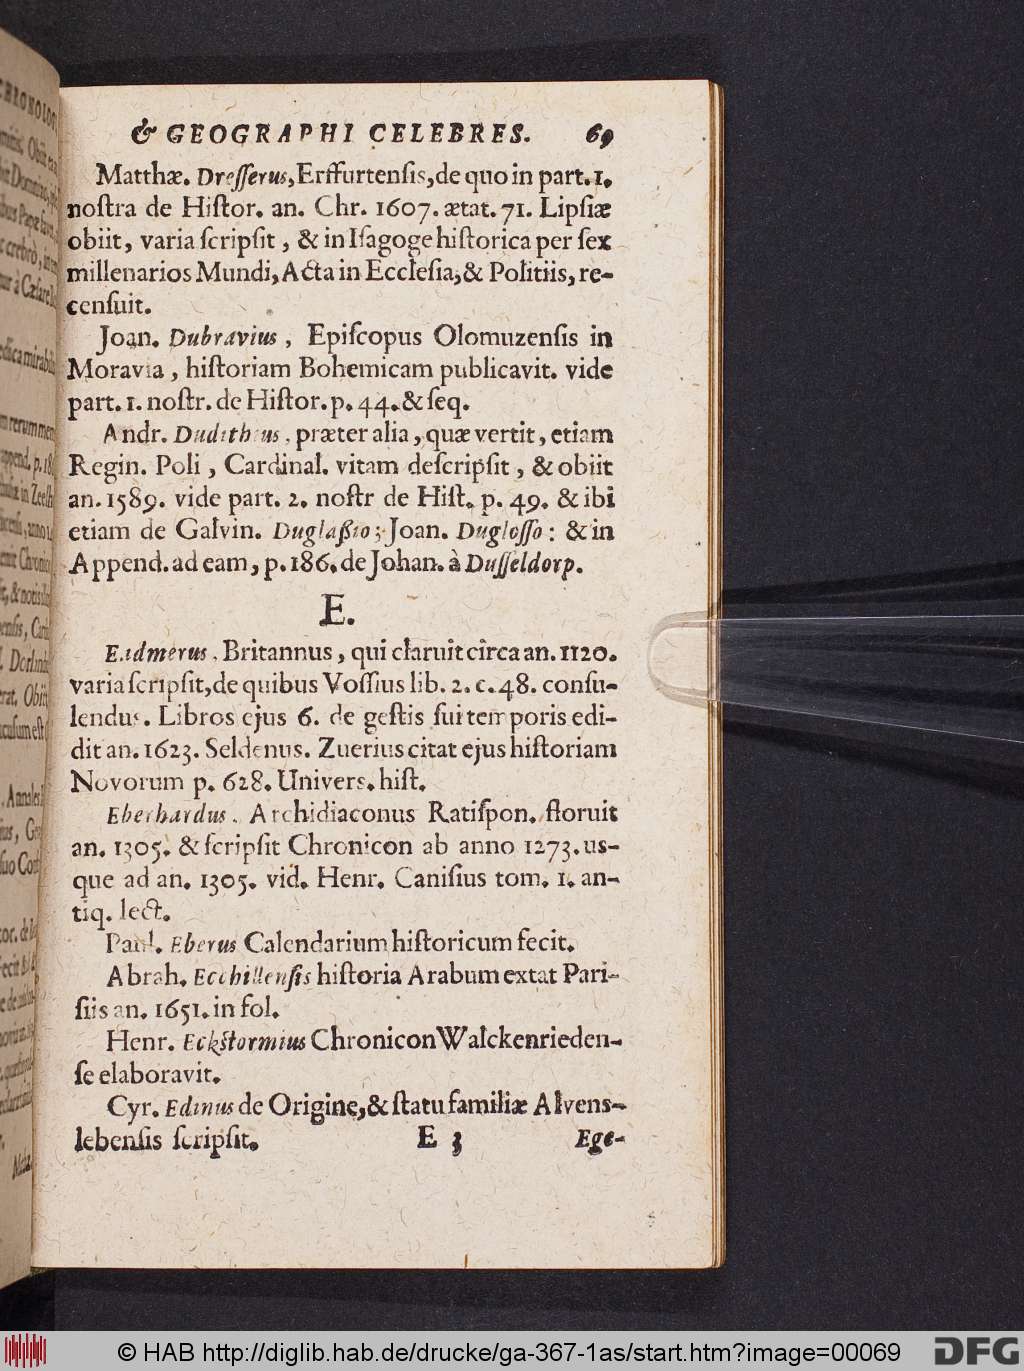 & GEOGRAPHI CELEBRES. 69
Matthæ. Dreſſerus, Erffurtenſis, de quo in part. 1.
noſtra de Hiſtor. an. Chr. 1607. ætat. 71. Lipſiæ
obiit, varia ſcripſit, & in Iſagoge hiſtorica per ſex
millenarios Mundi, Acta in Eccleſia, & Politiis, re-
cenſuit.
Joan. Dubravius, Epiſcopus Olomuzenſis in
Moravia, hiſtoriam Bohemicam publicavit. vide
part. 1. noſtr. de Hiſtor. p. 44. & ſeq.
Andr. Dudithius, præter alia, quæ vertit, etiam
Regin. Poli, Cardinal. vitam deſcripſit, & obiit
an. 1589. vide part. 2. noſtr de Hiſt. p. 49. & ibi
etiam de Galvin. Duglaßio; Joan. Dugloſſo: & in
Append. ad eam, p. 186. de Johan. à Duſſeldorp.
E.
Eadmerus, Britannus, qui claruit circa an. 1120.
varia ſcripſit, de quibus Voſſius lib. 2. c. 48. conſu-
lendus. Libros ejus 6. de geſtis ſui temporis edi-
dit an. 1623. Seldenus. Zuerius citat ejus hiſtoriam
Novorum p. 628. Univerſ. hiſt.
Eberhardus. Archidiaconus Ratiſpon. floruit
an. 1305. & ſcripſit Chronicon ab anno 1273. us-
que ad an. 1305. vid. Henr. Caniſius tom. 1. an-
tiq. lect.
Paul. Eberus Calendarium hiſtoricum fecit.
Abrah. Ecchillenſis hiſtoria Arabum extat Pari-
ſiis an. 1651. in fol.
Henr. Eckſtormius Chronicon Walckenrieden-
ſe elaboravit.
Cyr. Edinus de Origine, & ſtatu familiæ Alvens-
lebenſis ſcripſit. E 3 Ege-
© HAB http://diglib.hab.de/drucke/ga-367-1as/start.htm?image=00069
DFG